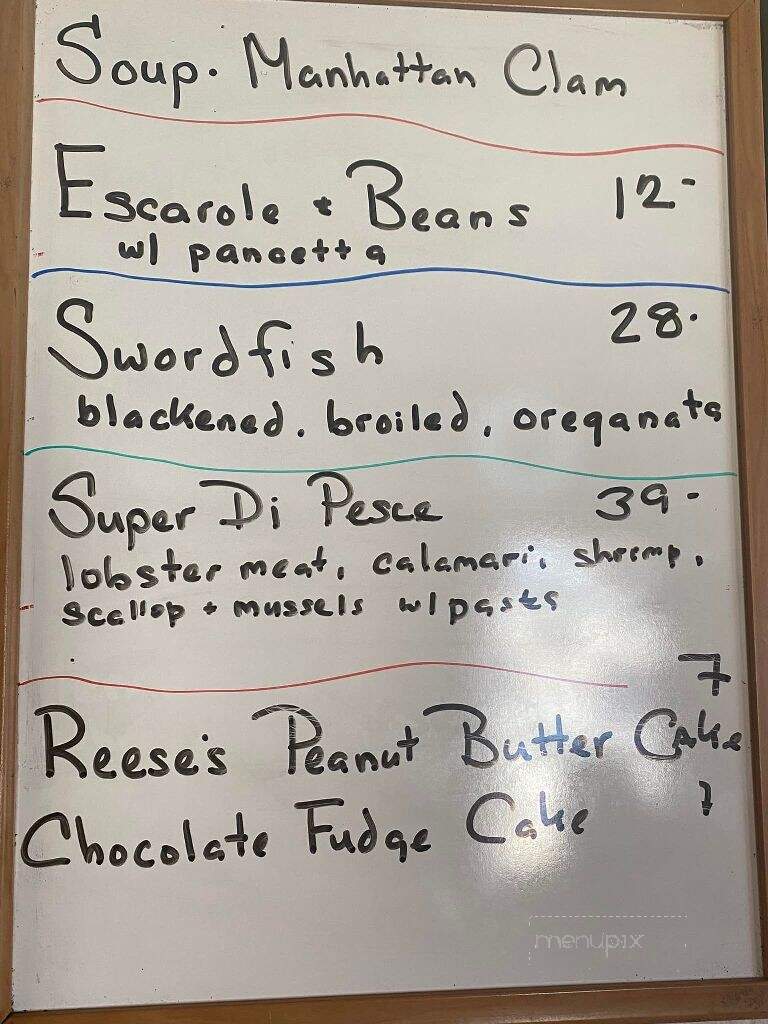 Soup. Manhattan Clam
Escarole + Beans 12-
w/ pancetta
Swordfish 28.
blackened, broiled, oreganata
Super Di Pesce 39-
lobster meat, calamari, shrimp,
scallop + mussels w/ pasta
7
Reese's Peanut Butter Cake
Chocolate Fudge Cake 7
menupix